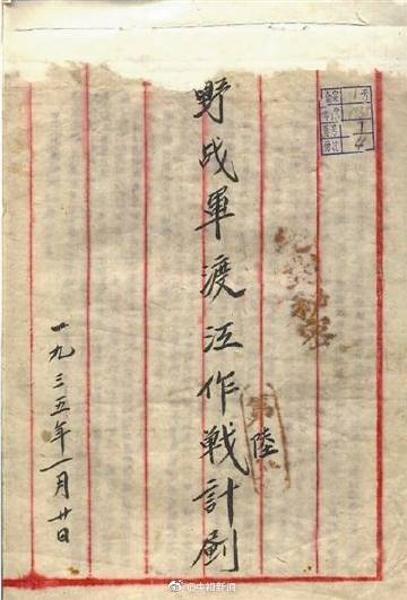 野战軍渡江作戰計劃
陸
一九三五年一月廿日
@央视新闻